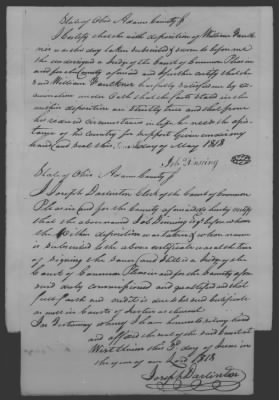 State of Ohio Adams County }
I certify that the within deposition of William Faulk
ner was this day taken subscribed & sworn to before me
the undersigned a Judge of the Court of Common Pleas in
and for the County aforesaid and further certify that the
said William Faulkner has fully satisfied me by ex
amination under Oath that the facts stated in the
within deposition are strictly true and that from
his reduced circumstances in life he needs the assis
tance of his Country for support Given under my
hand and seal this day of May 1818
Job Dinning
State of Ohio Adams County }
I Joseph Darlinton Clerk of the Court of Common
Pleas in and for the County aforesaid do hereby certify
that the above named Job Dinning Esq before whom
the within deposition was taken & whose name
is subscribed to the above certificate was at the time
of signing the same and still is a Judge of the
Court of Common Pleas in and for the County afore
said duly commissioned and qualified and that
full faith and credit is due to his said Certificate
as well in Courts of Justice as elsewhere
In Testimony whereof I have hereunto set my hand
and affixed the seal of the said Court at
West Union this 3d day of June in
the year of our Lord 1818
Joseph Darlinton